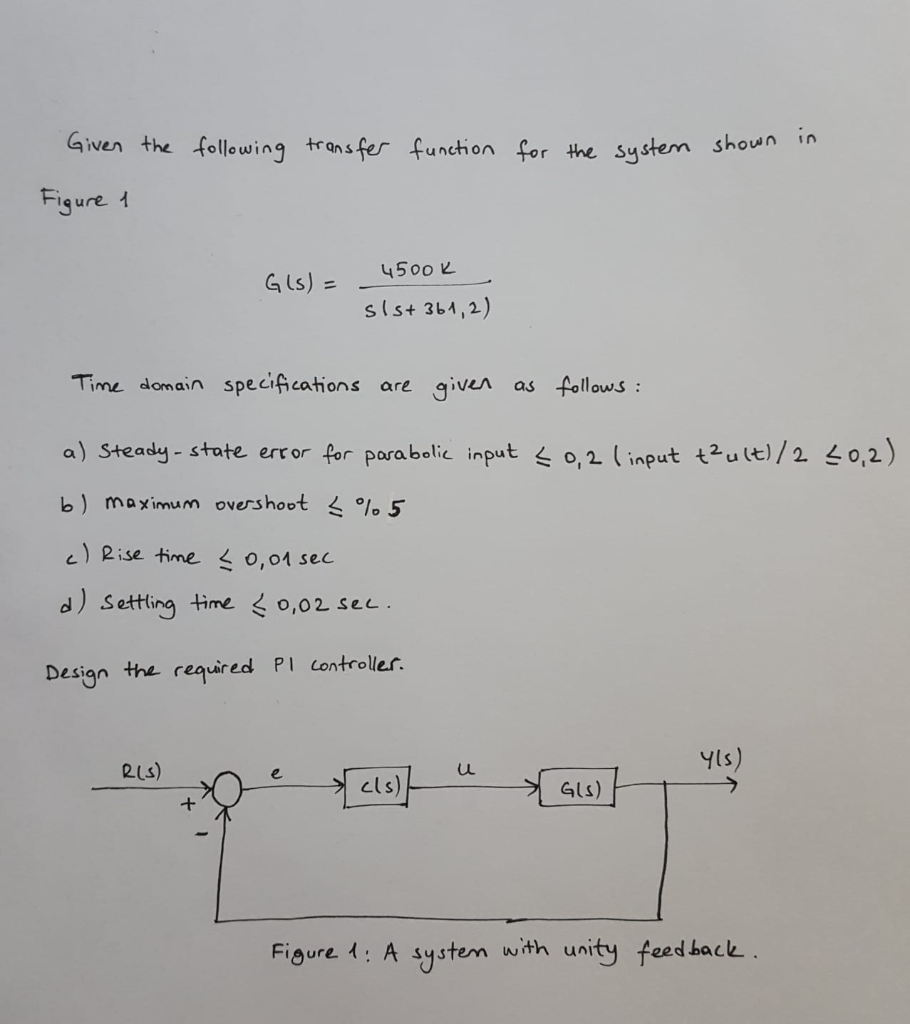 Given the following transfer function for the system shown in
Figure 1
G(s) = 4500K / s(s+361,2)
Time domain specifications are given as follows:
a) Steady-state error for parabolic input ≤ 0,2 (input t²u(t)/2 ≤0,2)
b) maximum overshoot ≤ %5
c) Rise time ≤ 0,01 sec
d) Settling time ≤ 0,02 sec.
Design the required PI controller.
R(s) + - e C(s) u G(s) Y(s)
Figure 1: A system with unity feedback.